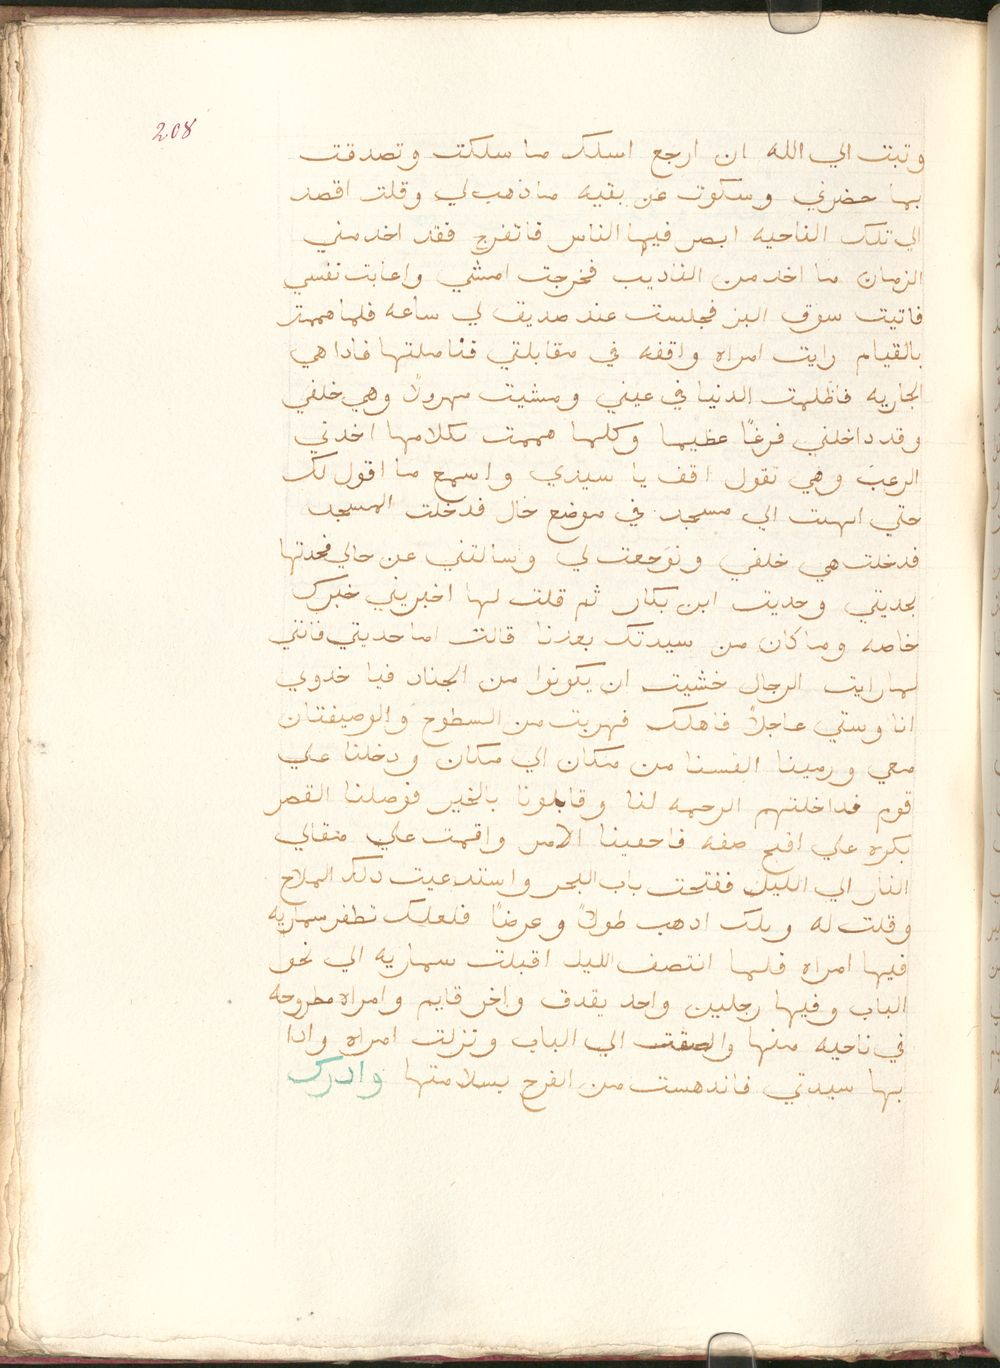 208
وتبت الي الله ان ارجع اسلك ما سلكت وتصدقت
بما حضرني وسكوت عن بقيه ماذهب لي وقلت اقصد
الي تلك الناحيه ابصر فيها الناس فاتفرج فقد اخد مني
الزمان ما اخد من التاديب فخرجت امشي واعابت نفسي
فاتيت سوق البز فجلست عند صديق لي ساعه فلما هممت
بالقيام رايت امراه واقفه في مقابلتي فتاملتها فادا هي
الجاريه فاظلمت الدنيا في عيني ومشيت مهرولاً وهي خلفي
وقد داخلني فزعاً عظيما وكلما هممت بكلامها اخدني
الرعب وهي تقول اقف يا سيدي واسمع ما اقول لك
حتي انتهيت الي مسجد في موضع خال فدخلت المسجد
فدخلت هي خلفي وتوجعت لي وسالتني عن حالي فحدتها
بحديتي وحديت ابن بكار ثم قلت لها اخبريني خبرك
خاصه وما كان من سيدتك بعدنا قالت اما حديتي فانني
لما رايت الرجال خشيت ان يكونوا من الجناد فيا خدوي
انا وستي عاجلاً فاهلك فهربت من السطوح والوصيفتان
معي ورمينا انفسنا من مكان الي مكان ودخلنا علي
قوم فداخلتهم الرحمه لنا وقابلونا بالخير فوصلنا القصر
بكره علي اقبح صفه فاخفينا الامر واقمت علي مقالي
النار الي الليل ففتحت باب البحر واستدعيت دلك الملاح
وقلت له ويلك ادهب طولاً وعرضاً فلعلك تظفر بسماريه
فيها امراه فلما انتصف الليل اقبلت سماريه الي نحو
الباب وفيها رجلين واحد يقدف واخر قايم وامراه مطروحه
في ناحيه منها والصقت الي الباب ونزلت امراه وادا
بها سيدتي فاندهست من الفرح بسلامتها وادرك